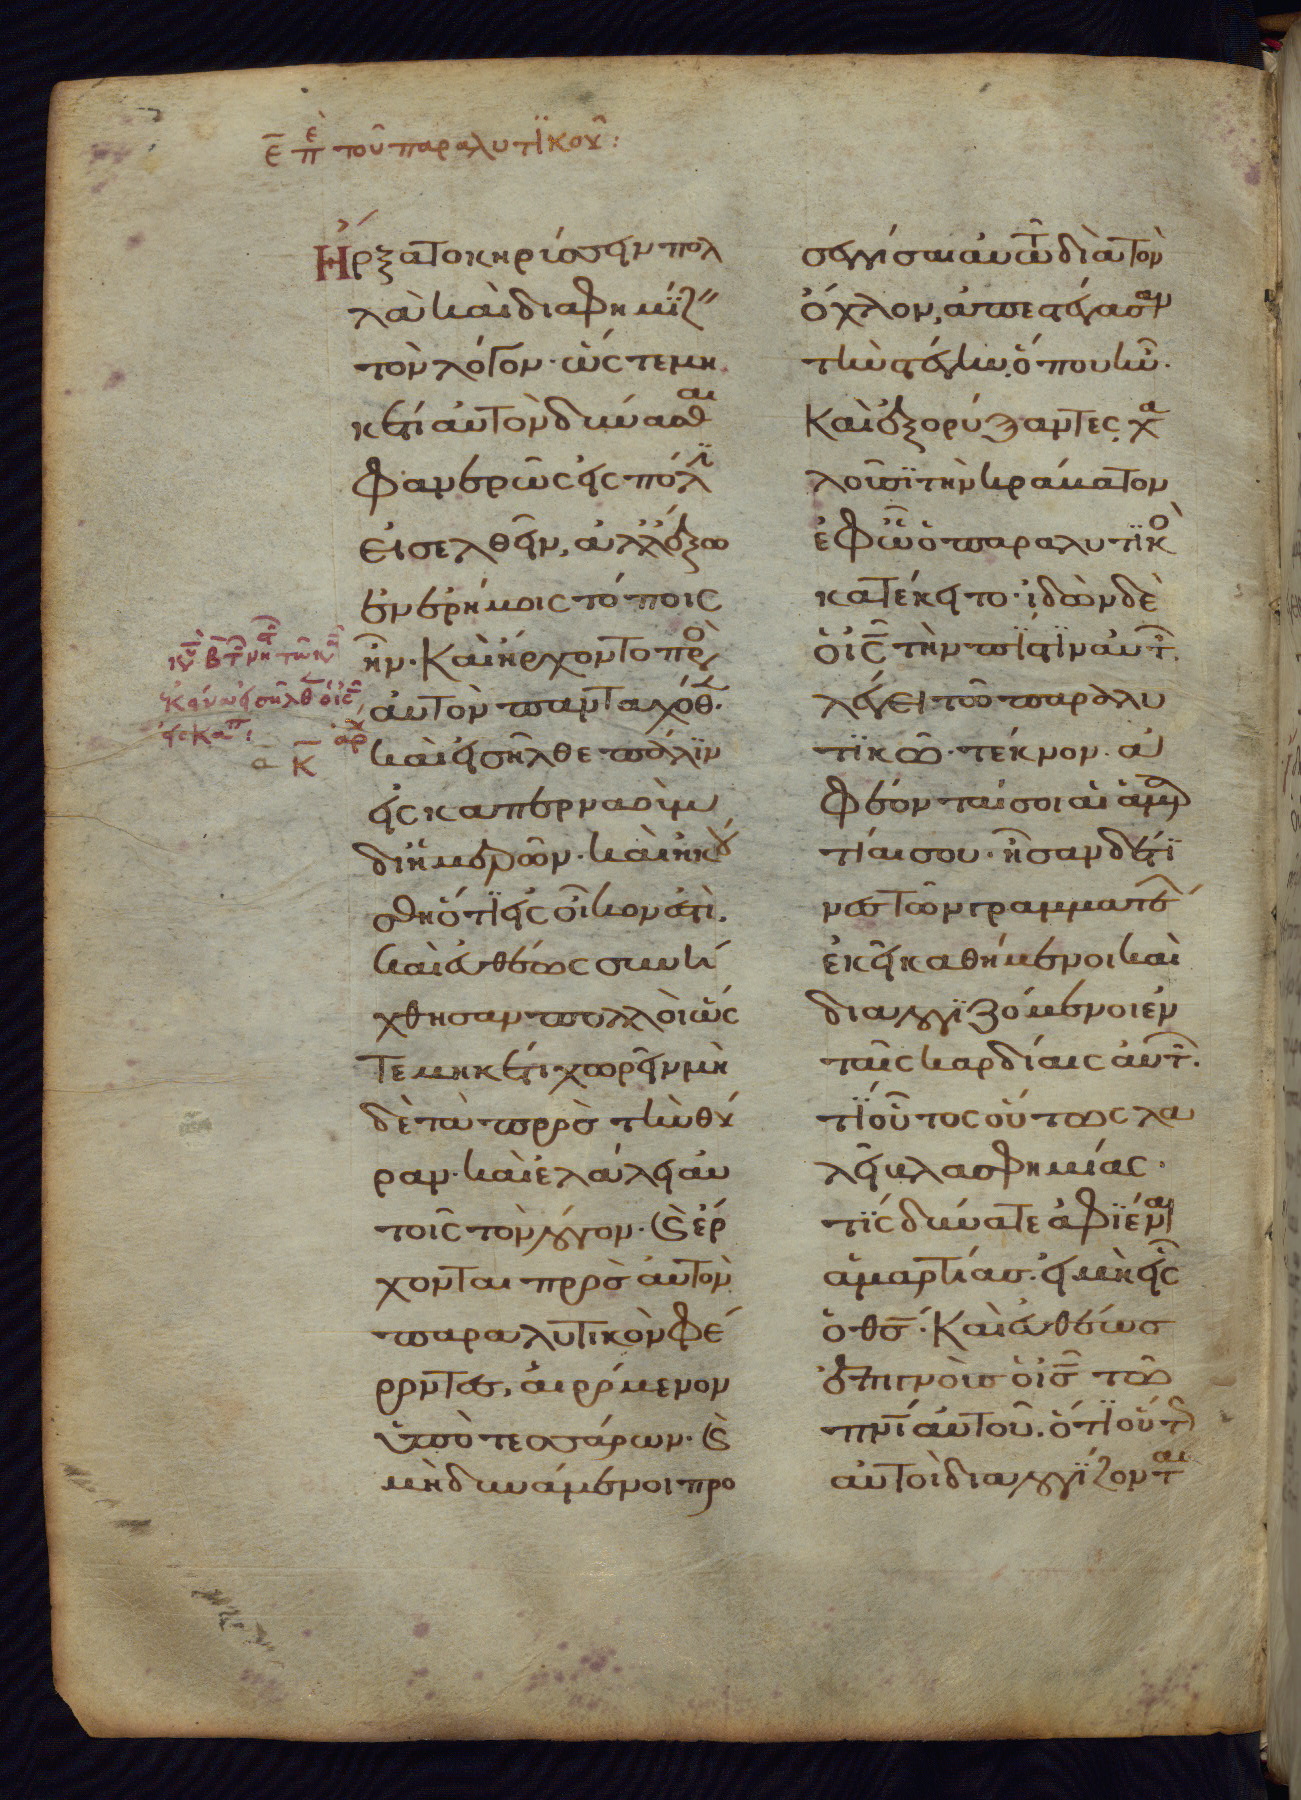 ε̄ πὲ τοῦ παραλυτϊκοῦ:
Ἤρξατο κηρύσσειν πολ
λὰ καὶ διαφημΐζ"
τὸν λόγον· ὥς τε μη
κέτι αὐτὸν δύνασθαι
φανερῶς εἰς πόλϊ
εἰσελθεῖν, ἀλλ' ἔξω
ἐν ἐρήμοις τόποις
ἦν· Καὶ ἤρχοντο πρὸ
αὐτὸν πανταχόθ.
καὶ εἰσῆλθε πάλϊν
εἰς καπερναοὺμ
δι ἡμερῶν· καὶ ἠκού
σθη ὅτϊ εἰς οἶκον ἐστὶ.
καὶ εὐθέως συνή
χθησαν πολλοὶ ὥς
τε μηκέτι χωρεῖν μη
δὲ τὰ πρὸς τὴν θύ
ραν· καὶ ἐλάλει αὐ
τοῖς τὸν λόγον· ϗ ἔρ
χονται πρὸς αὐτὸν
παραλυτικὸν φέ
ροντες, αἰρόμενον
ὑπὸ τεσσάρων· ϗ
μὴ δυνάμενοι προ
σεγγίσαι αὐτῶ διὰ τὸν
ὄχλον, ἀπεστέγασαν
τὴν στέγην, ὅπου ἦν·
Καὶ ἐξορύξαντες χα
λῶσϊ τὴν κράβατον
ἐφ ὧ ὁ παραλυτϊκὸ
κατέκειτο· ἰδὼν δὲ
ὁ ις̄ τὴν πίστϊν αὐτ.
λέγει τῶ παραλυ
τϊκῶ· τέκνον. ἀ
φέονταί σοι αἱ ἁμαρ
τίαι σου· ἦσαν δέ τϊ
νες τῶν γραμματέ
ἐκεῖ καθήμενοι καὶ
διαλογϊζόμενοι ἐν
ταῖς καρδίαις αὐτ.
τΐ οὗτος οὕτως λα
λεῖ βλασφημίας·
τΐς δύναται ἀφϊέναι
ἁμαρτίας. εἰ μὴ εἷς
ὁ θς̄· Καὶ εὐθέως
ἐπιγνοὺς ὁ ις̄ τῶ
πνῑ αὐτοῦ. ὅτϊ οὕτ
αὐτοὶ διαλογΐζονται
κυ β τ νη τῶν
ἐκείνω εἰσῆλθ ὁ ις̄
εἰς καπ:
ἀρχ
ᾱ κ̄